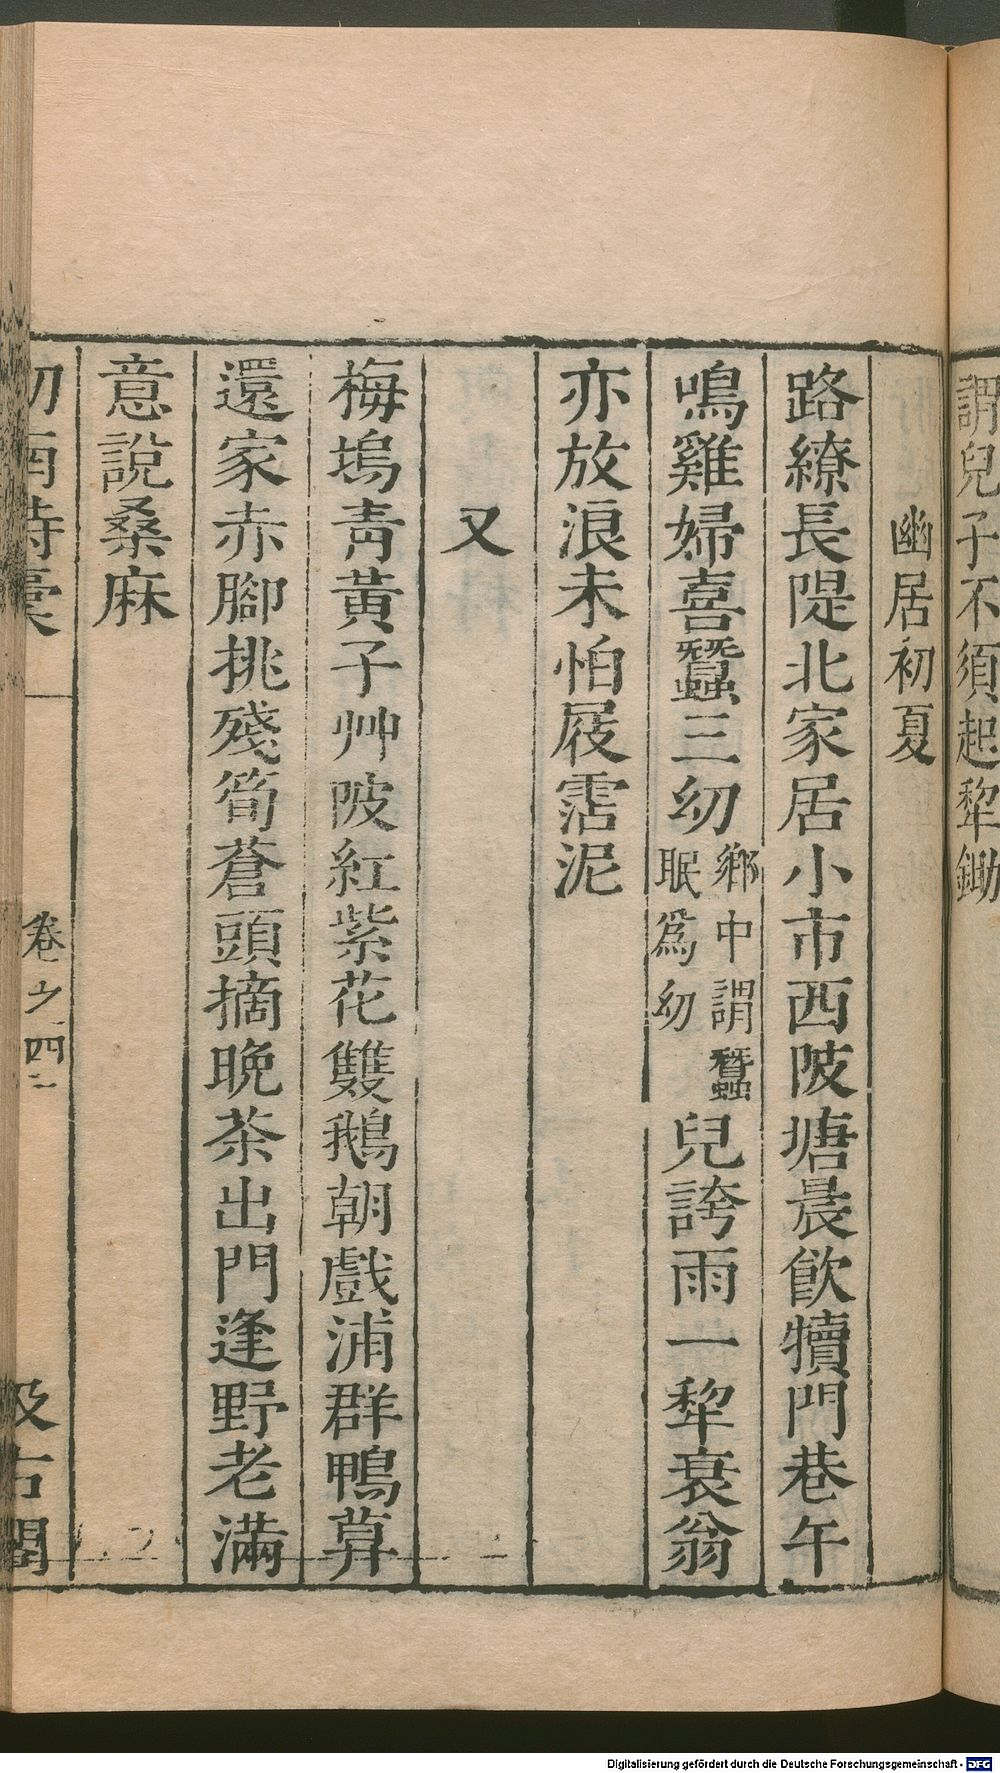 謂兒子不須起犂鋤
幽居初夏
路繚長隄北家居小市西陂塘晨飲犢門巷午
鳴雞婦喜蠶三幼鄉中謂蠶眠爲幼兒誇雨一犂衰翁
亦放浪未怕屐霑泥
又
梅塢靑黃子艸陂紅紫花雙鵝朝戲浦群鴨莫
還家赤腳挑殘筍蒼頭摘晚茶出門逢野老滿
意說桑麻
劒南詩稾 卷之四二 汲古閣
Digitalisierung gefördert durch die Deutsche Forschungsgemeinschaft - DFG